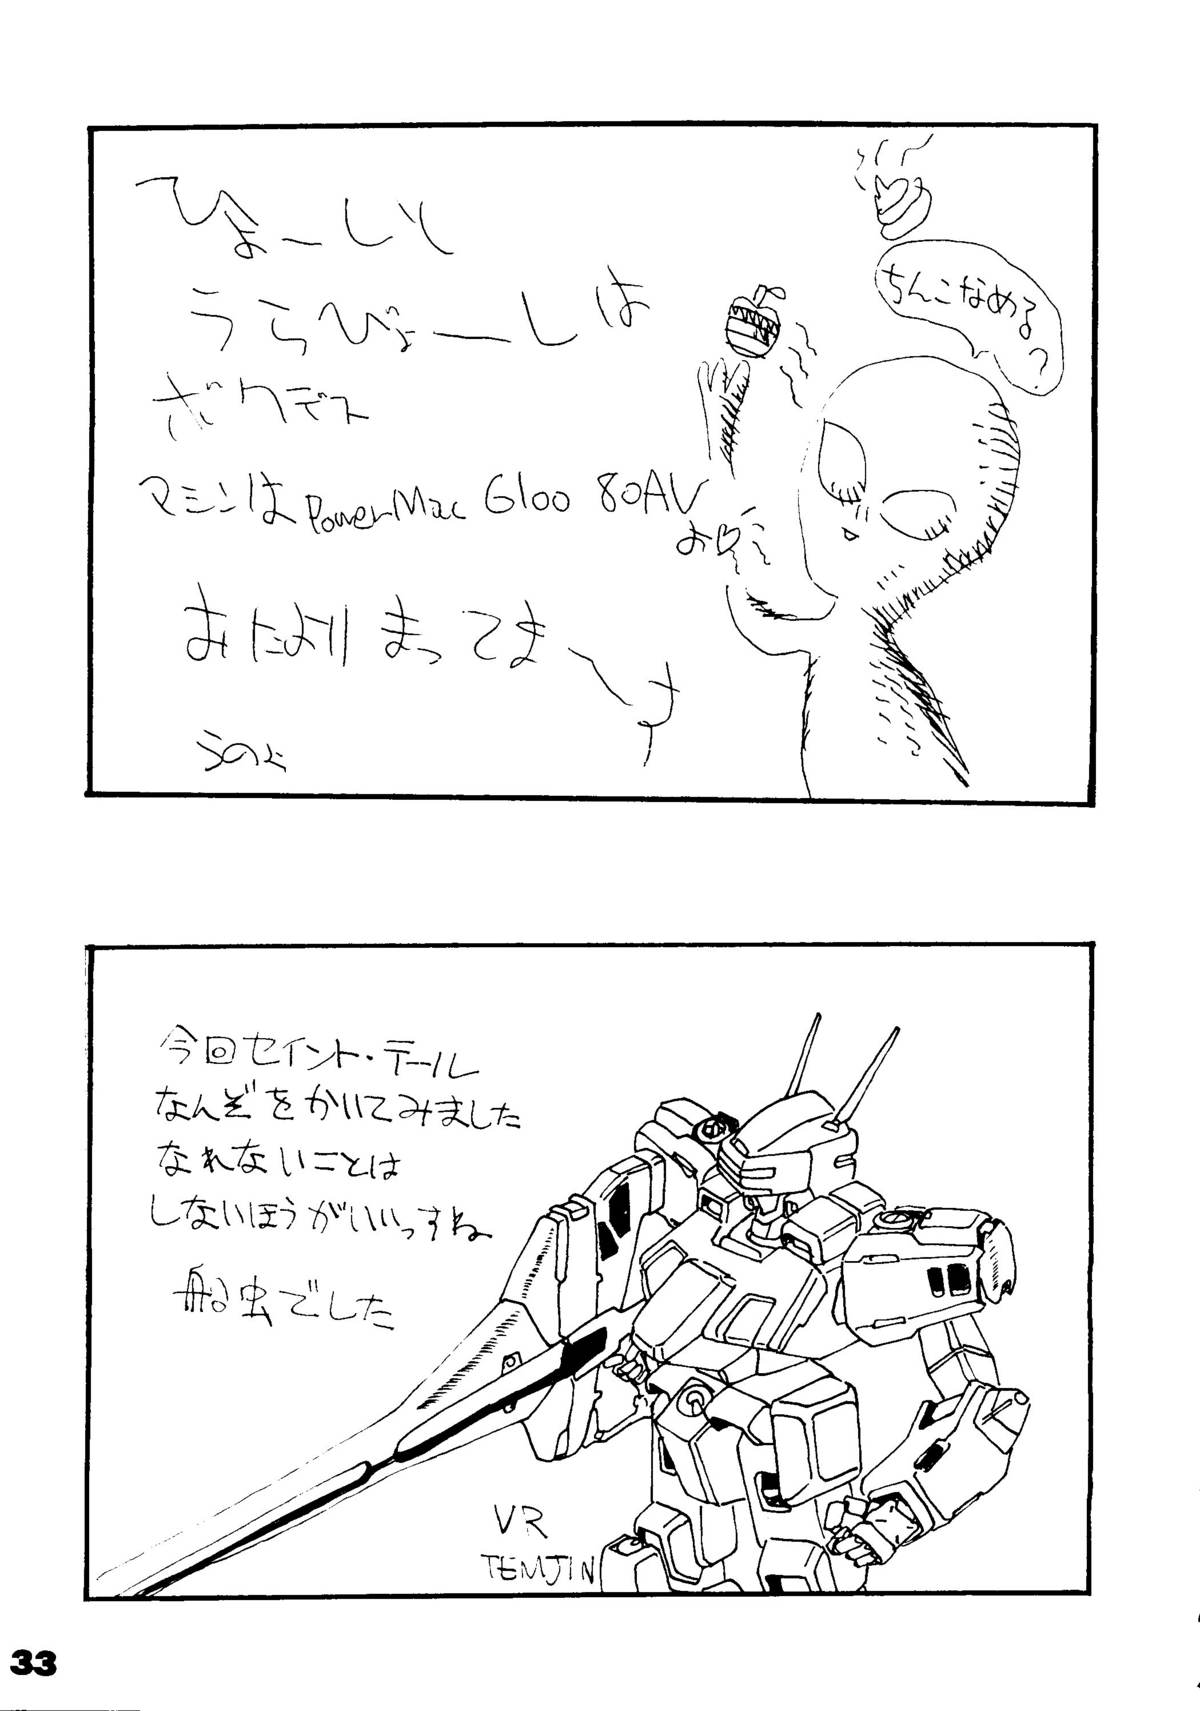 ひょーしと
うらびょーしは
ボクデス
マシンはPowerMac 6100 80AV
よ♡
おたよりまってまーす
うのよ
ちんこなめる?
今回セイント・テール
なんぞをかいてみました
なれないことは
しないほうがいいっすね
船虫でした
VR
TEMJIN
33